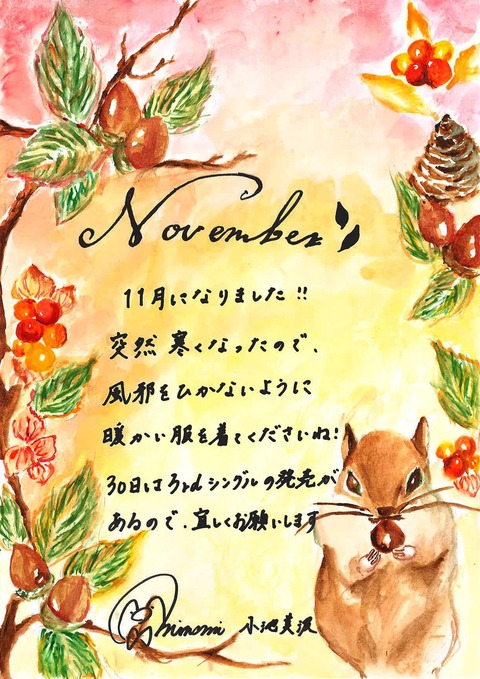 November
11月になりました!!
突然 寒くなったので、
風邪をひかないように
暖かい服を着てくださいね!
30日は3rdシングルの発売が
あるので、宜しくお願いします
minami 小池美波